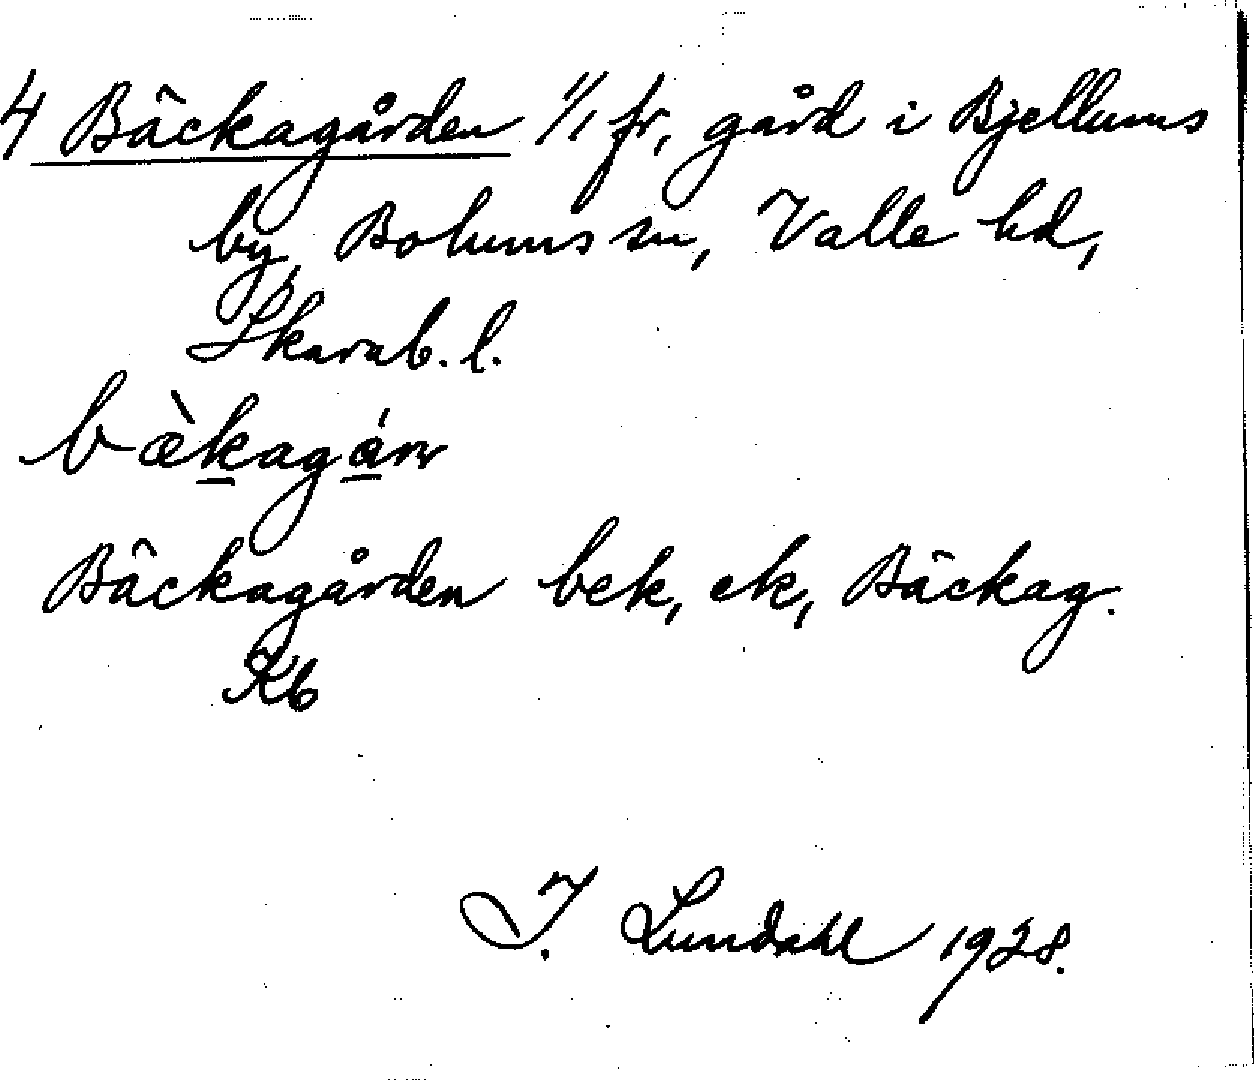 4 Bäckagården 1/1 fr, gård i Bjellums
by, Bolums sn, Valle hd,
Skarab. l.
bæ̀kagán
Bäckagården bek, ek, Bäckag.
Kb
I. Lundahl 1928.